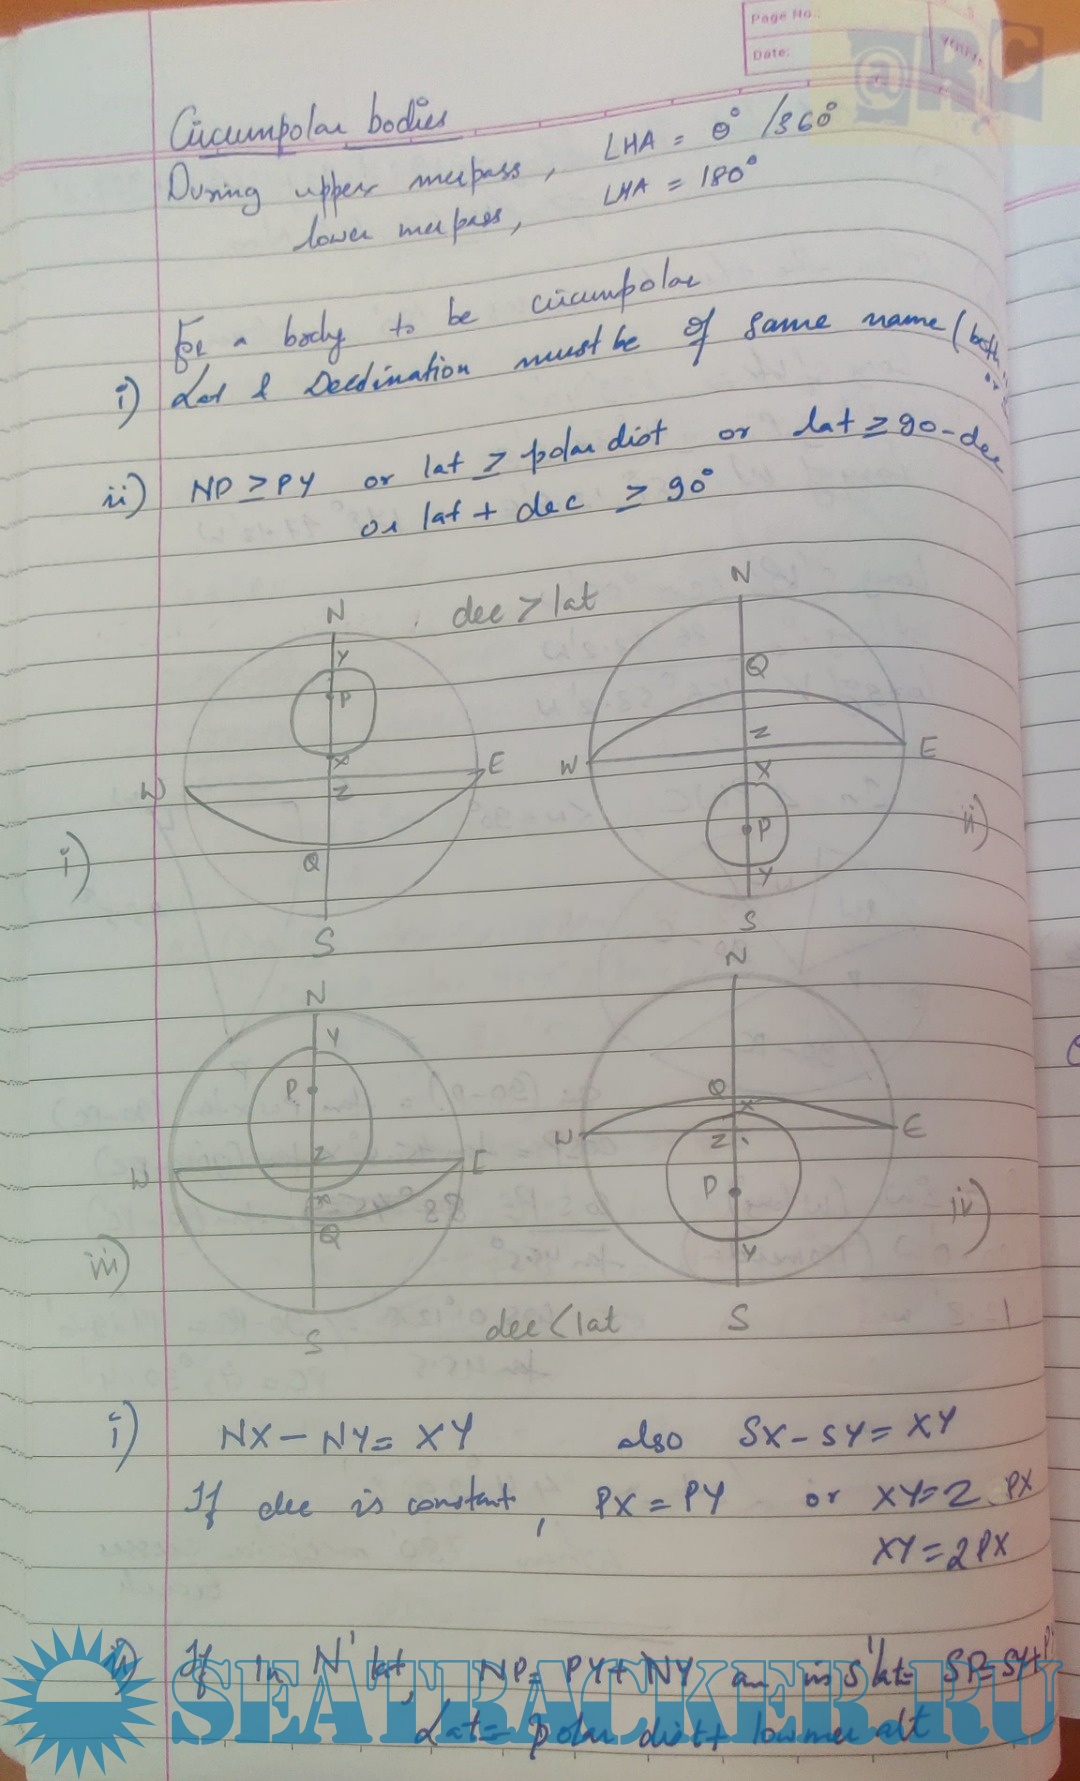 Page No.:
Date:
YOUVA
@RC
Circumpolar bodies
During upper merpass, LHA = 0° /360°
lower merpass, LHA = 180°
For a body to be circumpolar
i) Lat & Declination must be of same name (both
or
ii) NP ≥ PY or lat ≥ polar dist or lat ≥ 90 - dec
or lat + dec ≥ 90°
dec > lat
N
Y
P
X
W
E
Z
Q
S
i)
N
Q
Z
W
E
X
P
Y
S
ii)
N
Y
P
Z
W
E
X
Q
S
iii)
N
Q
X
W
E
Z
P
Y
S
iv)
dec < lat
i) NX - NY = XY also SX - SY = XY
If dec is constant, PX = PY or XY = 2 PX
XY = 2PX
ii) If in N' lat, NP = PY + NY an in S'lat = SP = SY + P
Lat = polar dist + low mer alt
SEATRACKER.RU